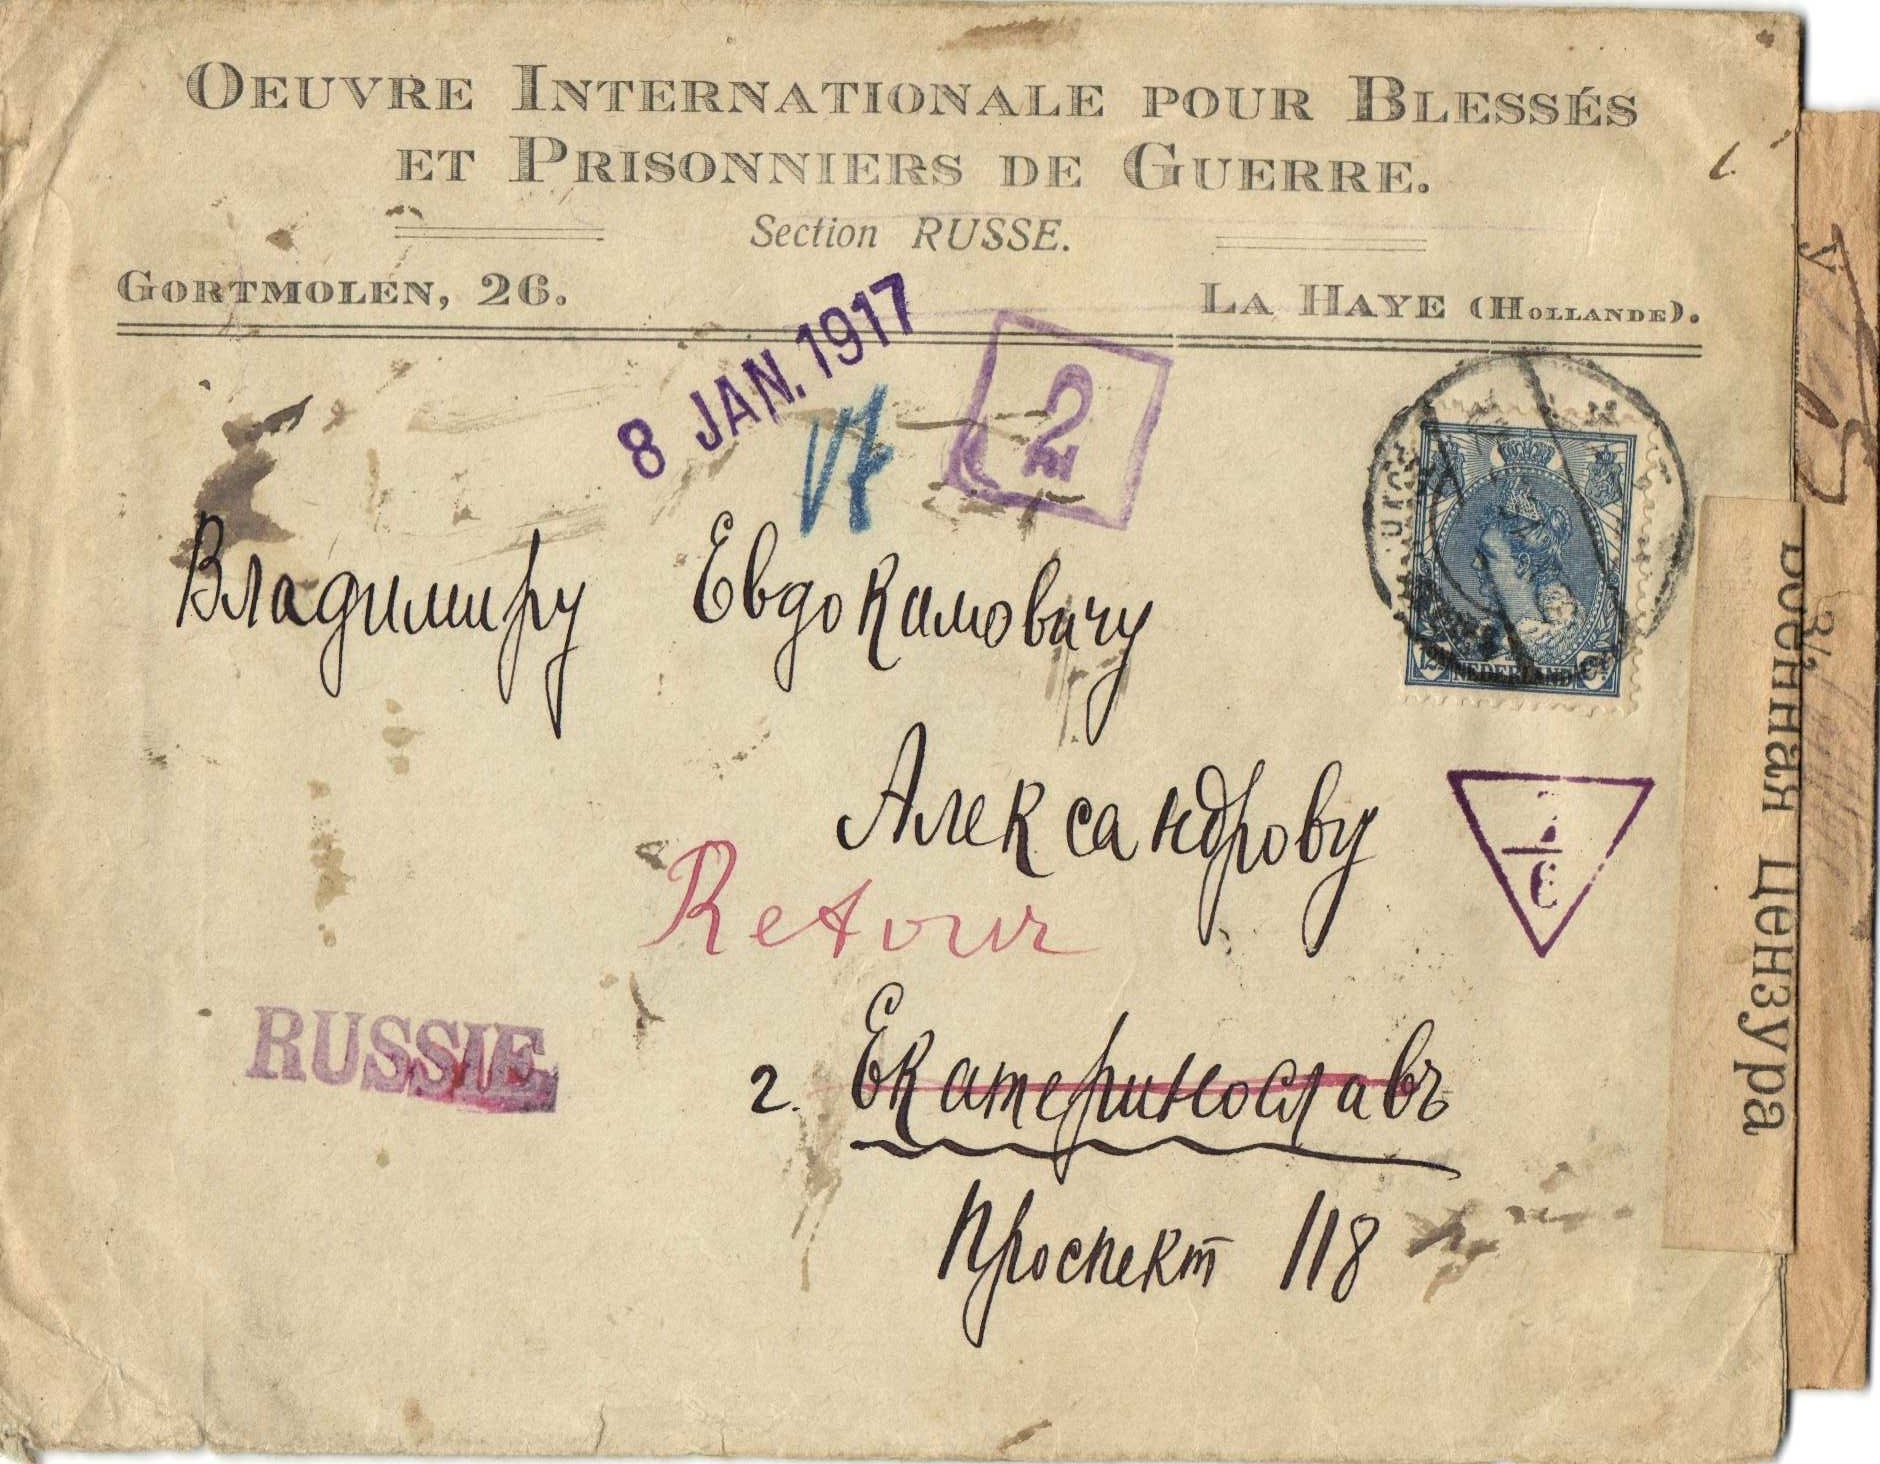 OEUVRE INTERNATIONALE POUR BLESSÉS
ET PRISONNIERS DE GUERRE.
Section RUSSE.
GORTMOLEN, 26.
LA HAYE (HOLLANDE).
8 JAN. 1917
2
Владимиру Евдокимовичу
Александрову
Retour
RUSSIE
г. Екатеринославъ
Проспект 118
12½ NEDERLAND Ct
Военная цензура